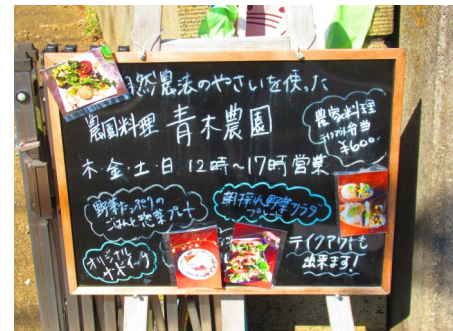 然農法のやさいを使った
農園料理 青木農園
農家料理
テイクアウト弁当
¥600
木・金・土・日 12時〜17時営業
野菜たっぷりの
ごはんと惣菜プレート
朝採れ野菜サラダ
プレート
オリジナル
テイクアウトも
出来ます!